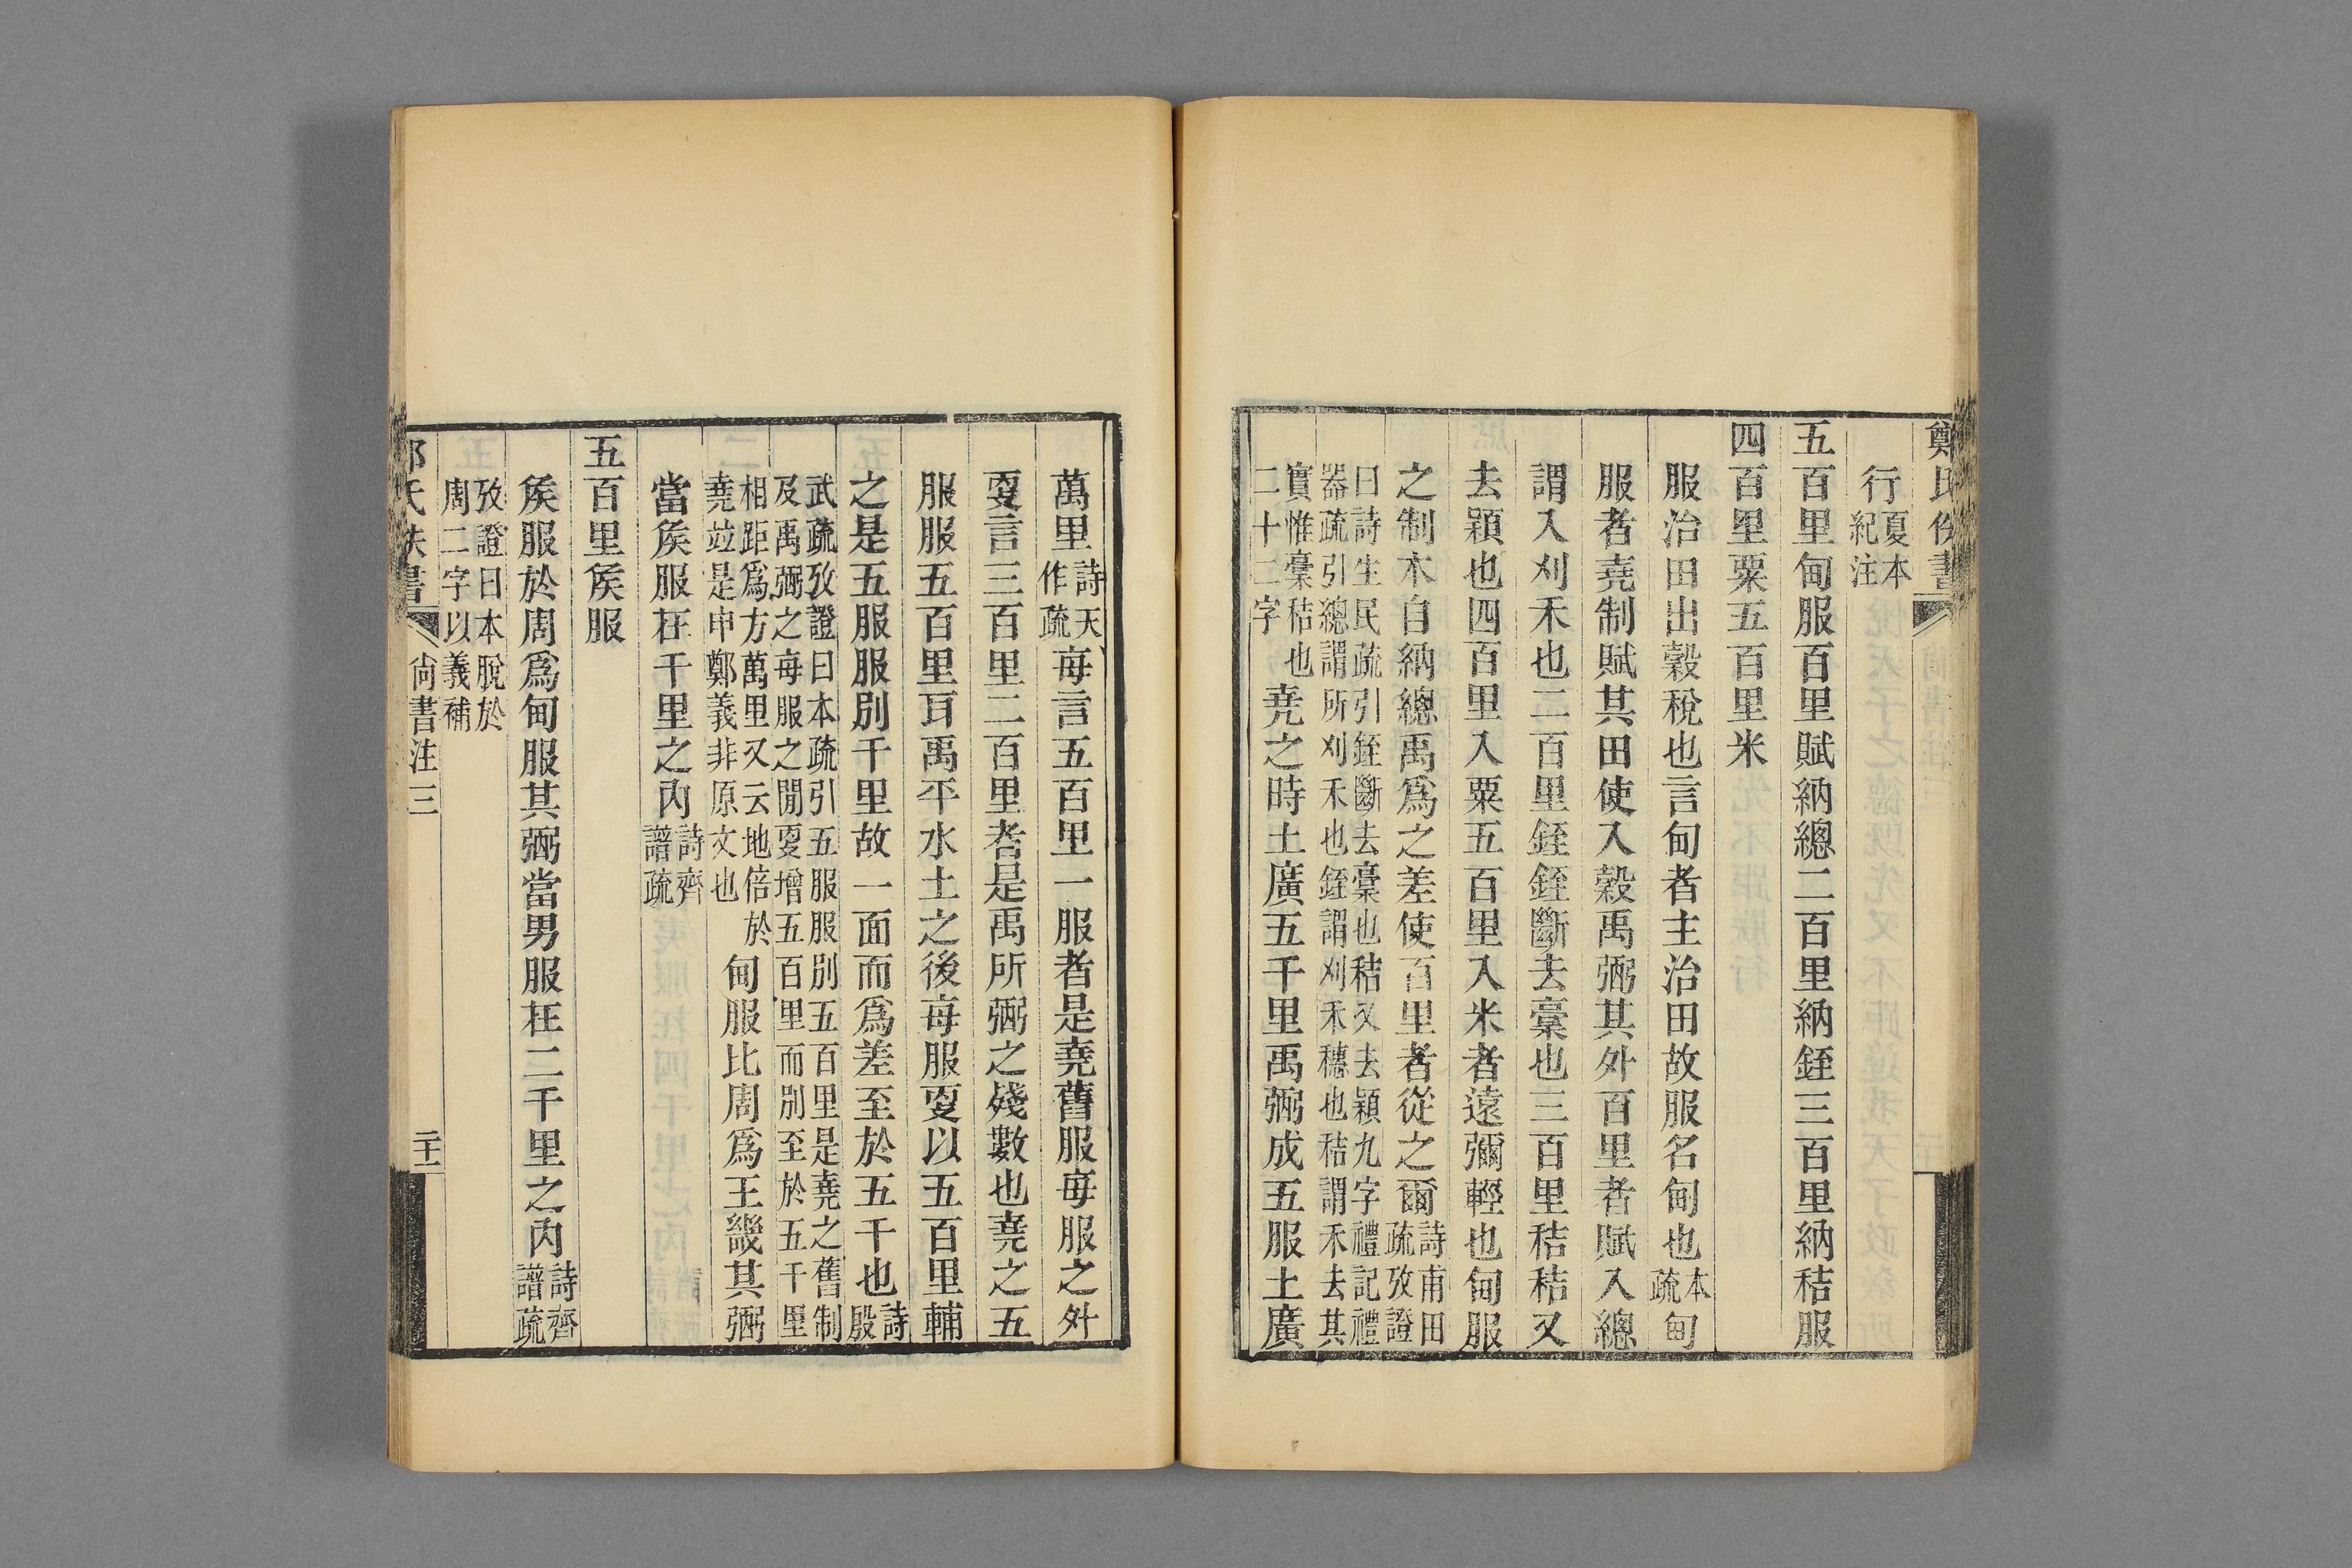 鄭氏佚書
行夏本紀注
五百里甸服百里賦納總二百里納銍三百里納秸服
四百里粟五百里米
服治田出穀稅也言甸者主治田故服名甸也本疏甸
服者堯制賦其田使入穀禹弼其外百里者賦入總
謂入刈禾也二百里銍銍斷去稾也三百里秸秸又
去穎也四百里入粟五百里入米者遠彌輕也甸服
之制本自納總禹爲之差使百里者從之爾詩甫田疏攷證
曰詩生民疏引銍斷去稾也秸又去穎九字禮記禮
器疏引總謂所刈禾也銍謂刈禾穗也秸謂禾去其
實惟稾秸也二十二字堯之時土廣五千里禹弼成五服土廣
萬里詩天作疏每言五百里一服者是堯舊服每服之外
叓言三百里二百里者是禹所弼之殘數也堯之五
服服五百里耳禹平水土之後每服叓以五百里輔
之是五服服別千里故一面而爲差至於五千也詩殷
武疏攷證曰本疏引五服服別五百里是堯之舊制
及禹弼之每服之閒叓增五百里而別至於五千里
相距爲方萬里又云地倍於
堯竝是申鄭義非原文也
甸服比周爲王畿其弼
當矦服在千里之內詩齊譜疏
五百里矦服
矦服於周爲甸服其弼當男服在二千里之內詩齊譜疏
攷證曰本脫於
周二字以義補
氏佚書 尙書注三 二十一